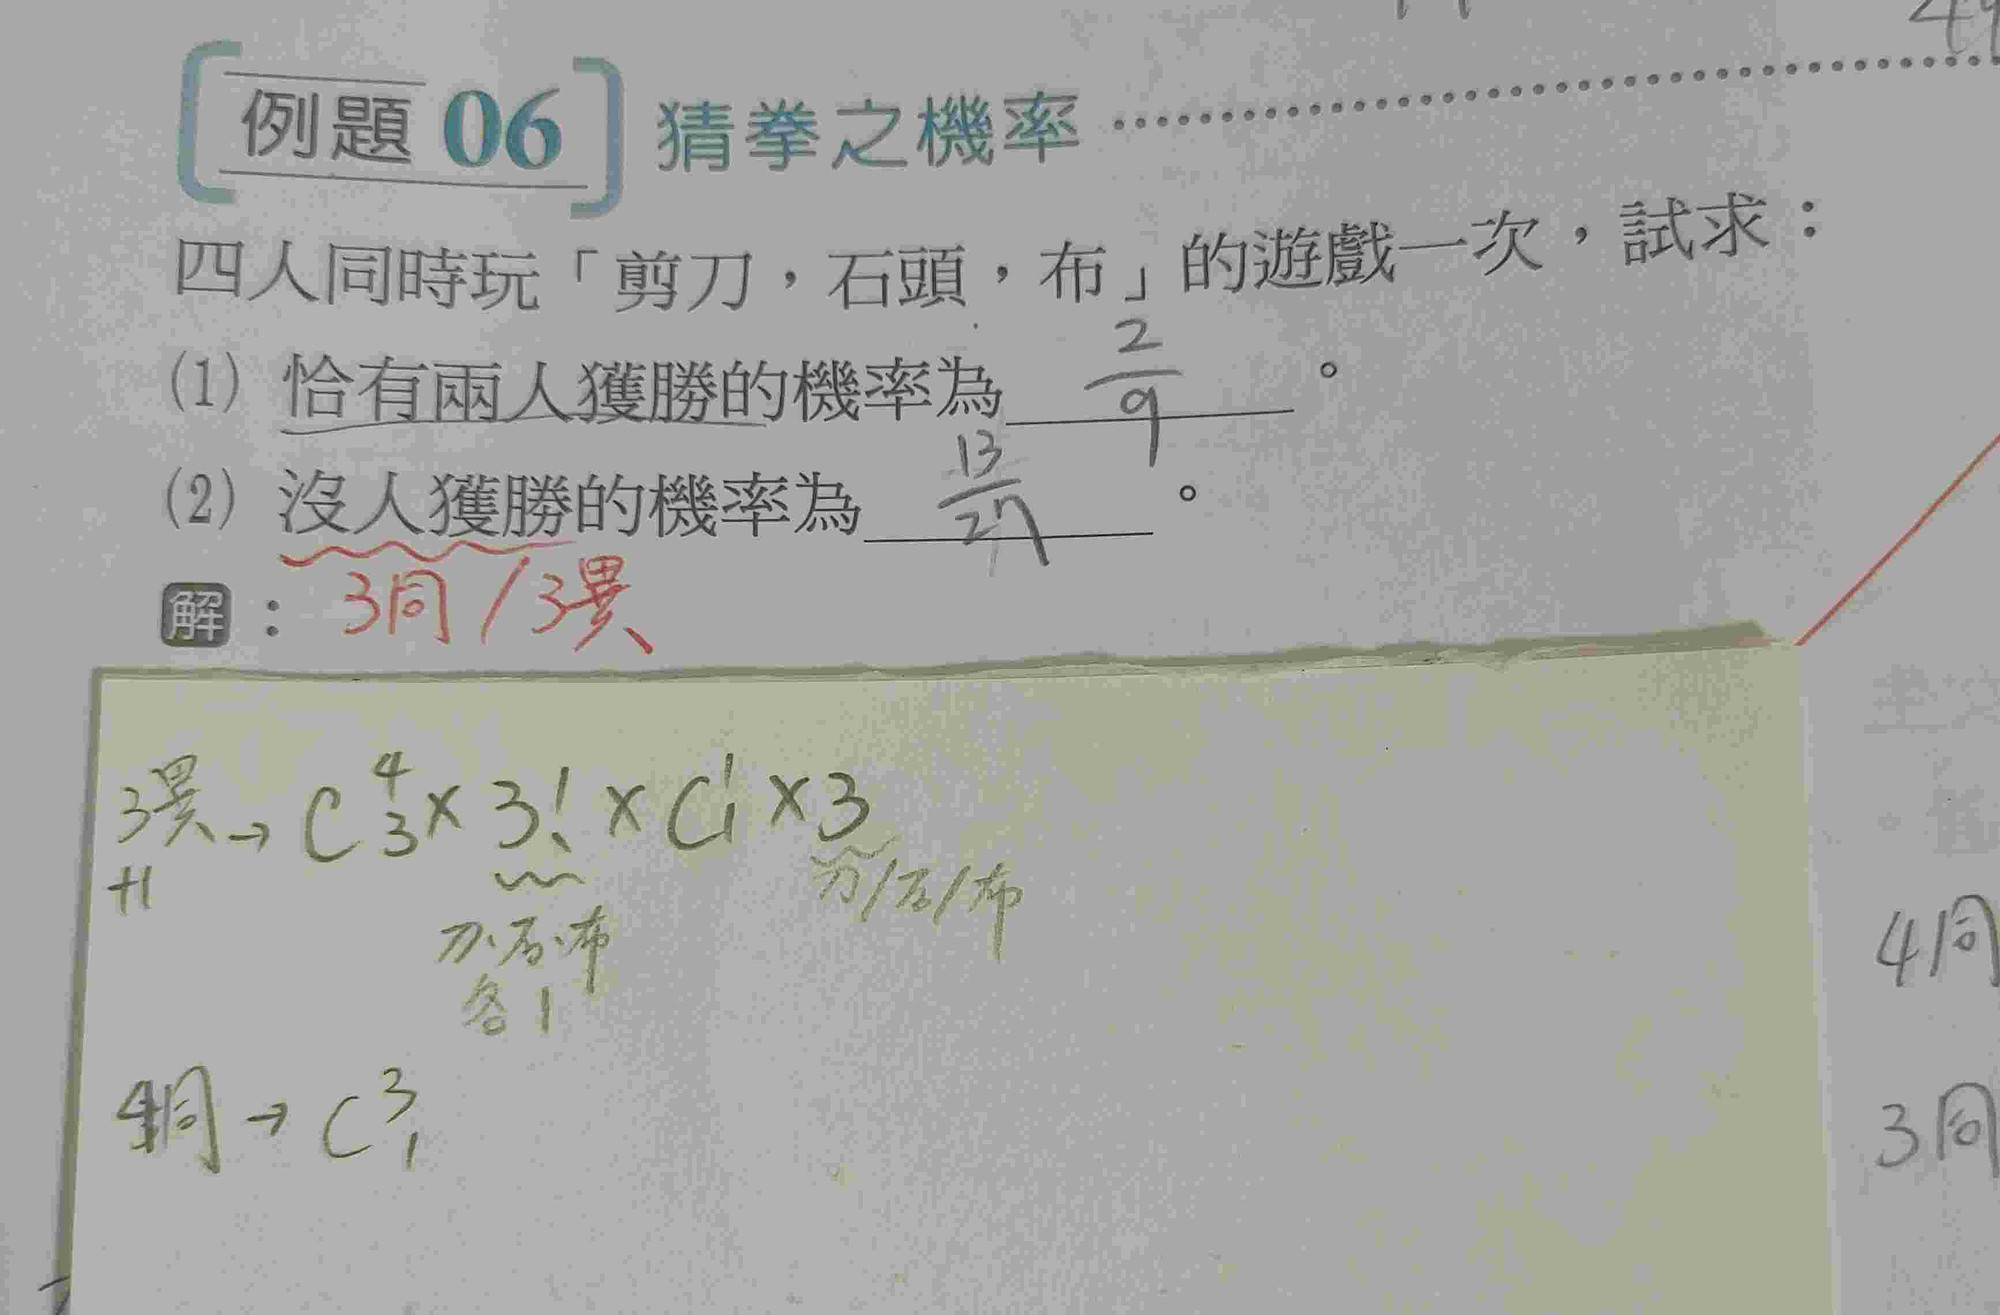 例題 06 猜拳之機率
四人同時玩「剪刀,石頭,布」的遊戲一次,試求:
(1) 恰有兩人獲勝的機率為 2/9 。
(2) 沒人獲勝的機率為 13/27 。
解: 3同/3異
3異→ C⁴₃ × 3! × C¹₁ × 3
+1
刀、石、布
各1
刀/石/布
4同
4同 → C³₁
3同